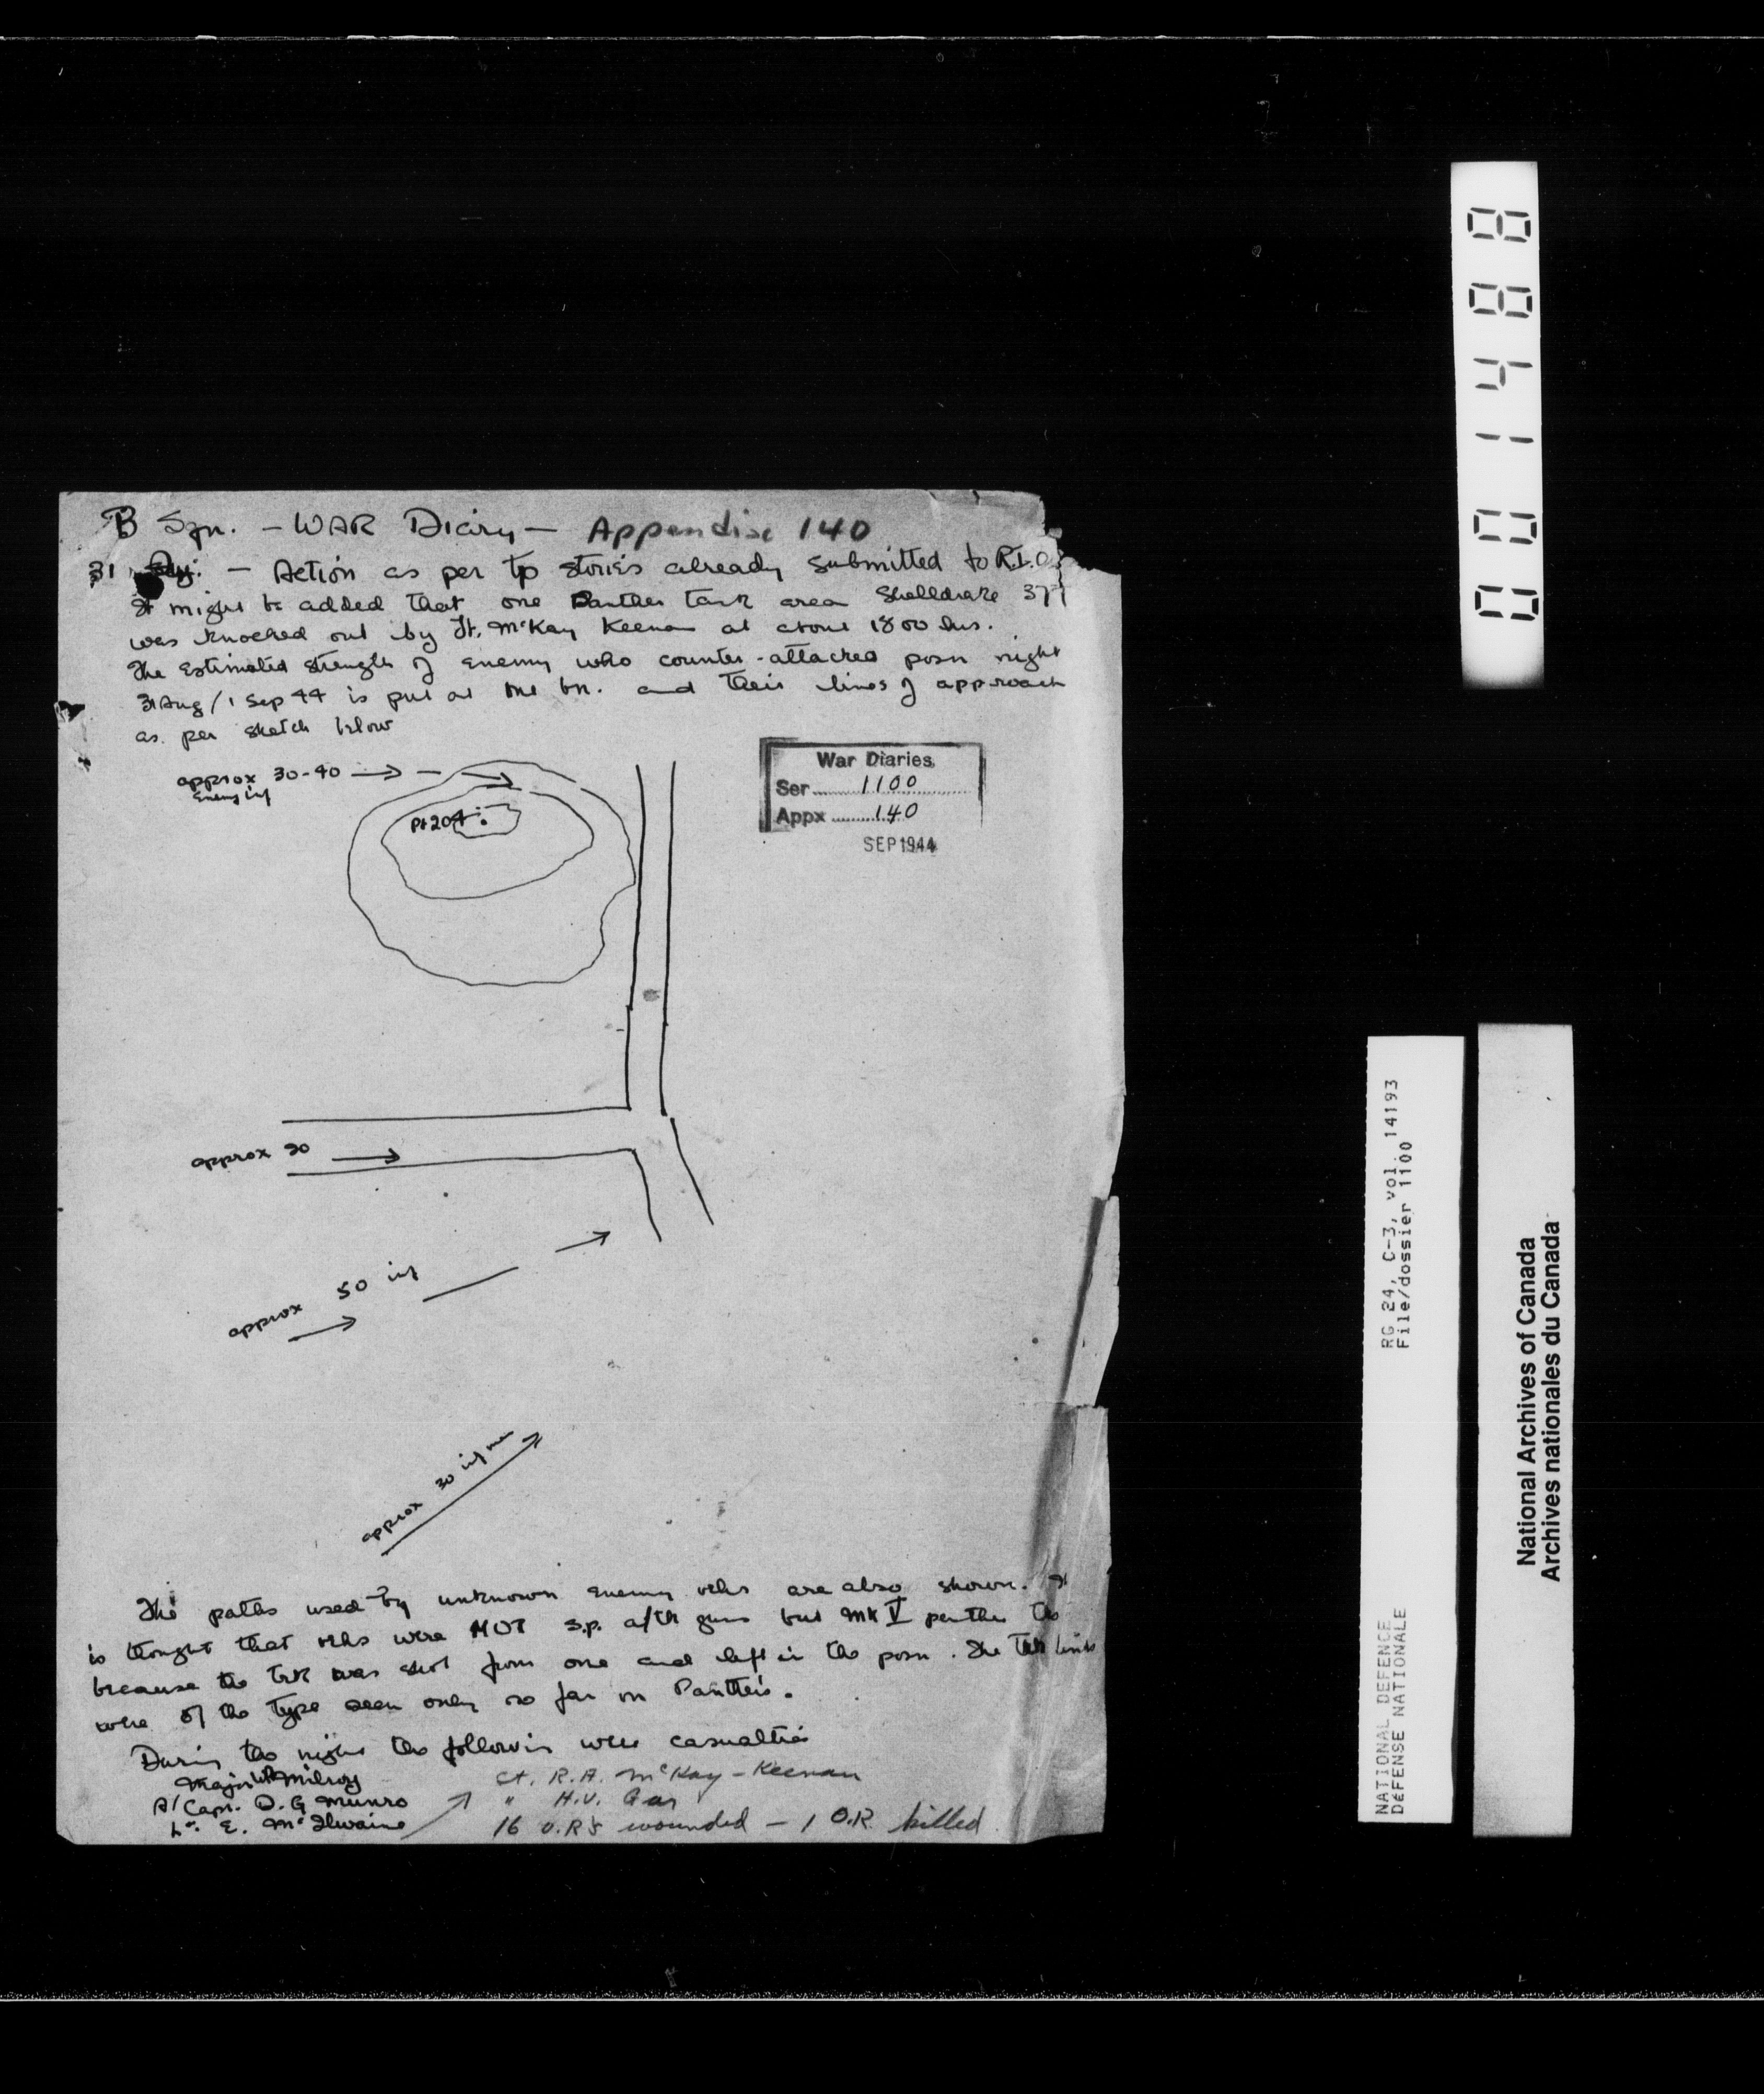 B Sqn. - WAR Diary - Appendix 140
31 - Action as per tp stories already submitted to R.I.O.
It might be added that one Panther tank area Shelldrake 377
was knocked out by Lt. McKay Keenan at about 1800 hrs.
The Estimated strength of Enemy who counter-attacked posn night
31 Aug/1 Sep 44 is put at one bn. and their lines of approach
as per sketch below
approx 30-40
Enemy inf
Pt 204
War Diaries
Ser 1100
Appx 140
SEP 1944
approx 30
approx 50 inf
approx 30 inf men
The paths used by unknown Enemy vehs are also shown. It
is thought that vehs were NOT S.P. a/tk guns but Mk V panther tks
because the trk was shot from one and left in the posn. The trk links
were of the type seen only so far on Panthers.
During the night the following were casualties
Major Milroy
A/Capt. D. G. Munro
Lt. E. McIlwaine
Lt. R.A. McKay-Keenan
" H.V. Gar
16 O.R's wounded - 1 O.R. killed
00 1488
RG 24, C-3, vol. 14193
File/dossier 1100
NATIONAL DEFENCE
DÉFENSE NATIONALE
National Archives of Canada
Archives nationales du Canada